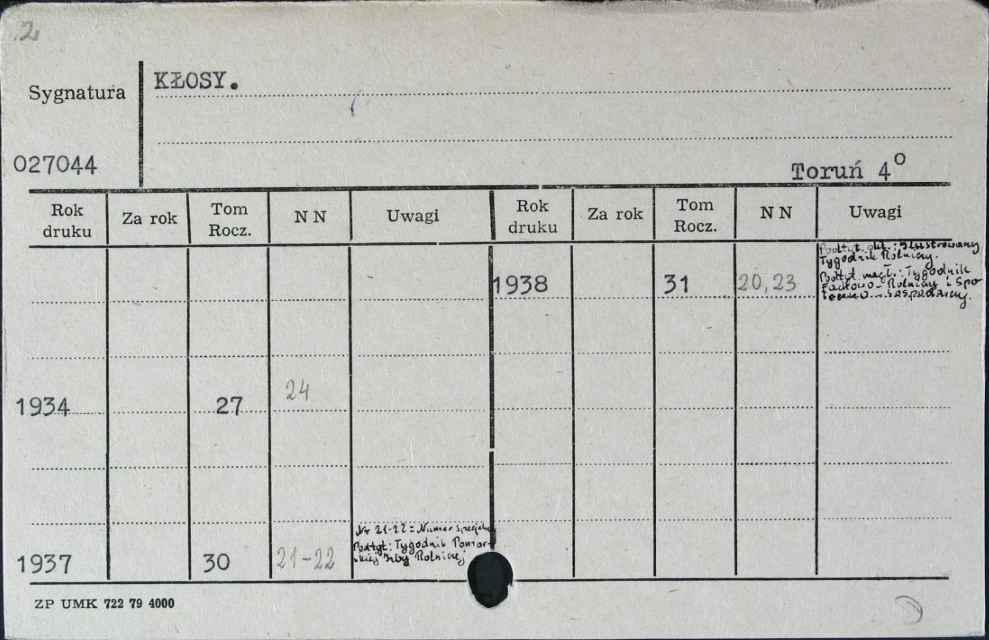 2
Sygnatura
KŁOSY.
027044
Toruń 4°
Rok druku Za rok Tom Rocz. N N Uwagi Rok druku Za rok Tom Rocz. N N Uwagi
1938 31 20,23
Podtyt. : Ilustrowany
Tygodnik Rolniczy.
Podtyt. nagł.: Tygodnik
Fachowo-Rolniczy i Spo
łeczno-Gospodarczy.
1934 27 24
1937 30 21-22
Nr 21-22 = Numer specjalny
Podtyt: Tygodnik Pomor-
skiej Izby Rolniczej
ZP UMK 722 79 4000